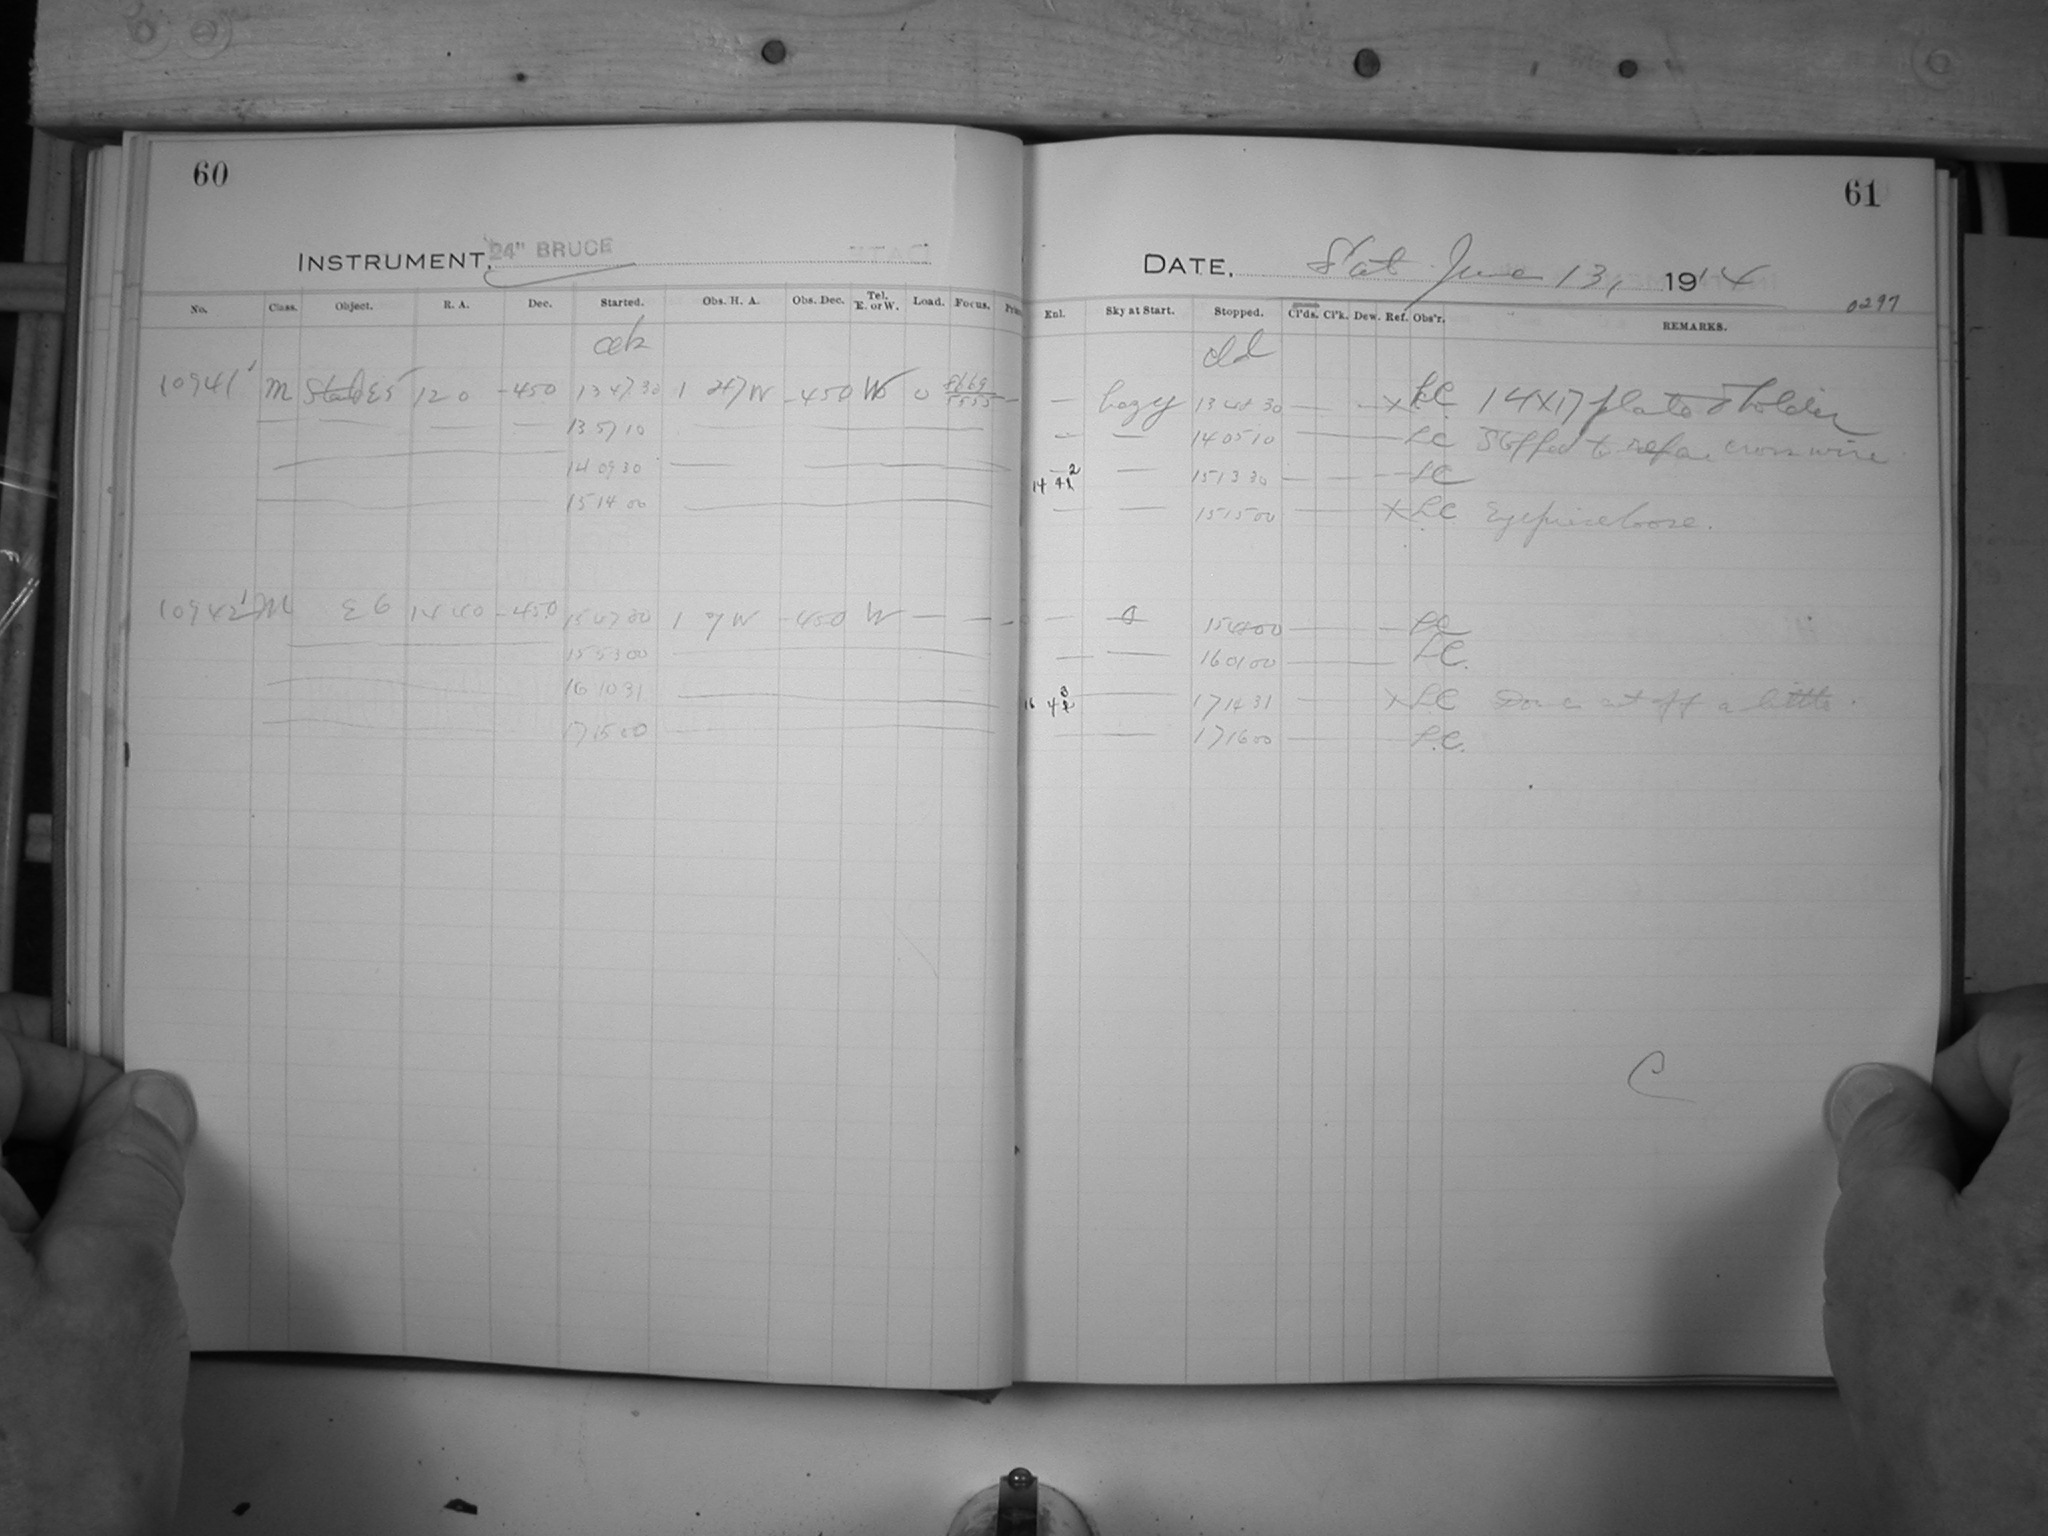 60
INSTRUMENT, 24" BRUCE
No. Class. Object. R. A. Dec. Started. Obs. H. A. Obs. Dec. Tel. E. or W. Load. Focus.
10941 M E5 12 0 -450 13 47 30 1 47 W -450 W 0
13 57 10
14 09 30
15 14 00
10942 M E6 14 40 -450 15 47 00 1 7 W -450 W — —
15 53 00
16 10 31
17 15 00
61
DATE, Sat June 13, 1914
0297
Enl. Sky at Start. Stopped. Cl'ds. Cl'k. Dew. Ref. Obs'r. REMARKS.
— hazy 13 48 30 — — X LC 14X17 plate holder
— — 14 05 10 — LC Stopped to cross wire
14 42 — 15 13 30 — — — LC
— — 15 15 00 — X LC Eyepiece loose.
— 15 48 00 — — LC
— — 16 01 00 — LC.
16 43 — 17 14 31 — X LC cut off a little.
— 17 16 00 — L.C.
C